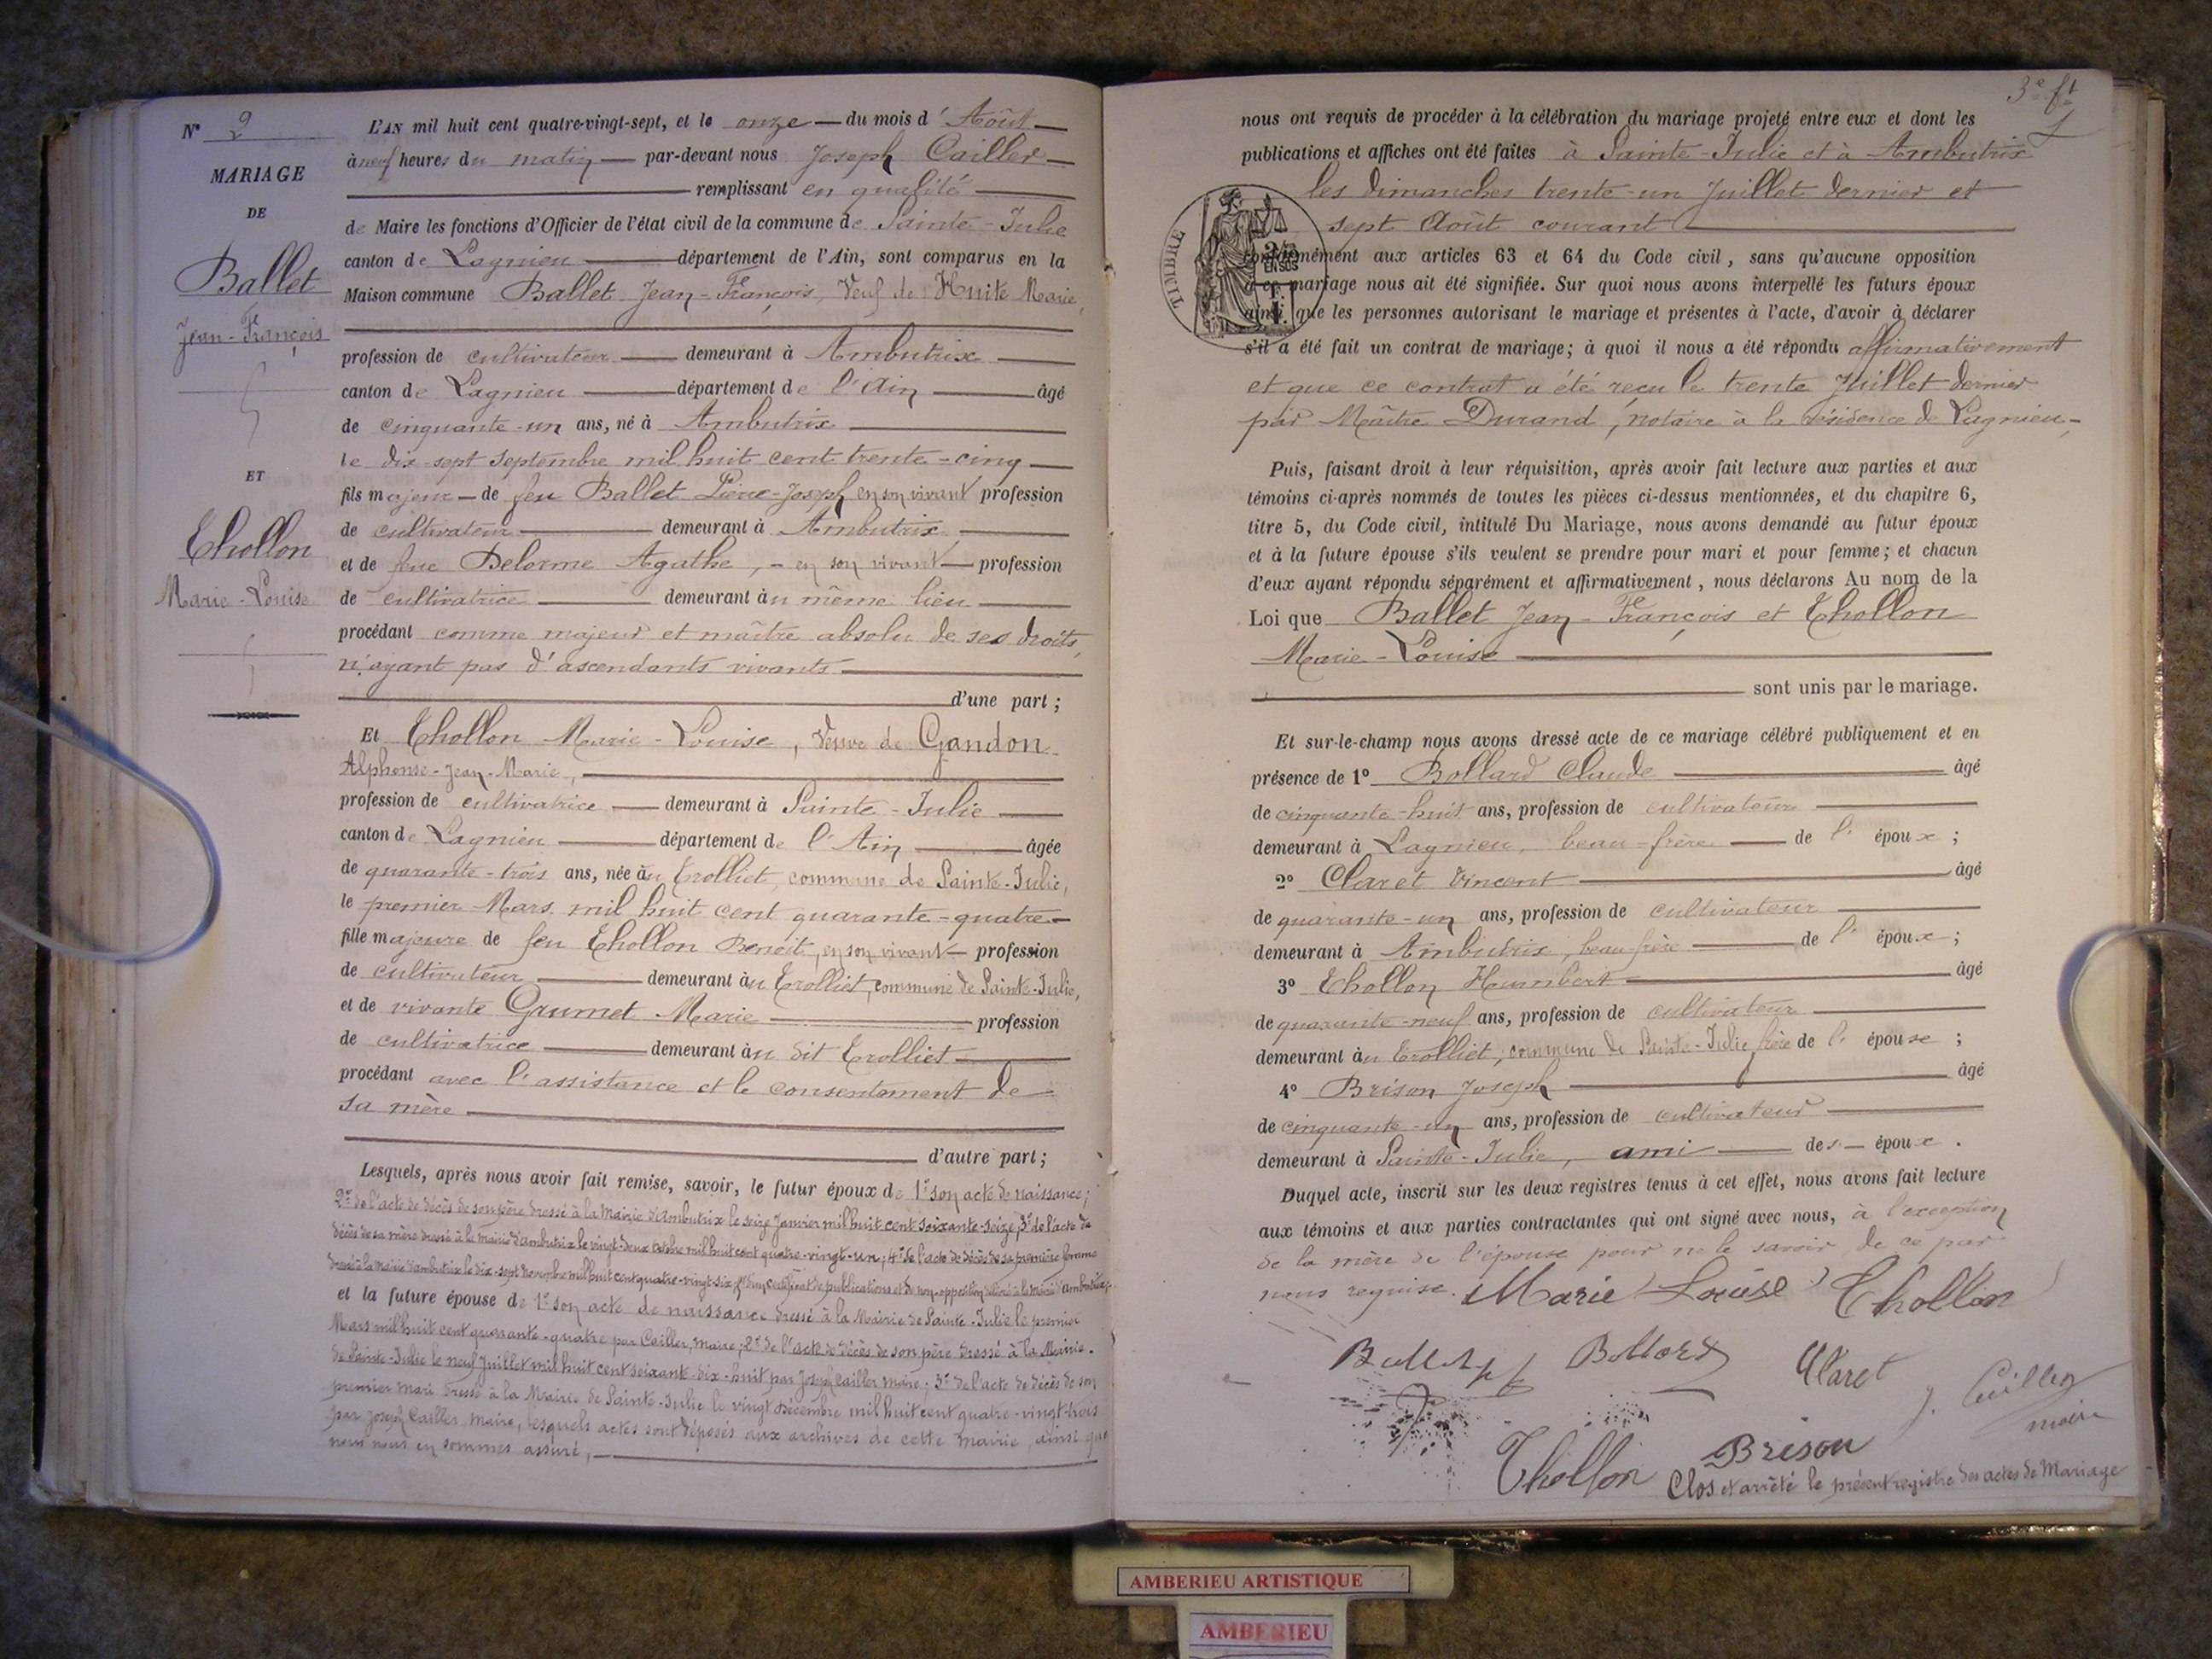 N° 2
MARIAGE
DE
Ballet
Jean-François
ET
Thollon
Marie-Louise
L'AN mil huit cent quatre-vingt-sept, et le onze du mois d'Août
à neuf heures du matin par-devant nous Joseph Cailler
remplissant en qualité
de Maire les fonctions d'Officier de l'état civil de la commune de Sainte-Julie
canton de Lagnieu département de l'Ain, sont comparus en la
Maison commune Ballet Jean-François, Veuf de Huite Marie,
profession de cultivateur demeurant à Ambutrix
canton de Lagnieu département de l'Ain âgé
de cinquante-un ans, né à Ambutrix
le dix-sept septembre mil huit cent trente-cinq
fils majeur de feu Ballet Pierre-Joseph en son vivant profession
de cultivateur demeurant à Ambutrix
et de feue Delorme Agathe, en son vivant profession
de cultivatrice demeurant au même lieu
procédant comme majeur et maître absolu de ses droits,
n'ayant pas d'ascendants vivants
d'une part ;
Et Thollon Marie-Louise, Veuve de Gandon
Alphonse-Jean-Marie,
profession de cultivatrice demeurant à Sainte-Julie
canton de Lagnieu département de l'Ain âgée
de quarante-trois ans, née au Trolliet, commune de Sainte-Julie,
le premier Mars mil huit cent quarante-quatre
fille majeure de feu Thollon Benoît, en son vivant profession
de cultivateur demeurant au Trolliet, commune de Sainte-Julie,
et de vivante Grumet Marie profession
de cultivatrice demeurant au dit Trolliet
procédant avec l'assistance et le consentement de
sa mère
d'autre part ;
Lesquels, après nous avoir fait remise, savoir, le futur époux de 1° son acte de naissance ;
2° de l'acte de décès de son père dressé à la Mairie d'Ambutrix le seize Janvier mil huit cent soixante-seize, 3° de l'acte de
décès de sa mère dressé à la mairie d'Ambutrix le vingt-deux octobre mil huit cent quatre-vingt-un ; 4° de l'acte de décès de sa première femme
dressé à la Mairie d'Ambutrix le dix-sept Novembre mil huit cent quatre-vingt-six certificat de publications et de non-opposition
et la future épouse de 1° son acte de naissance dressé à la Mairie de Sainte-Julie le premier
Mars mil huit cent quarante-quatre par Cailler, maire ; 2° de l'acte de décès de son père dressé à la Mairie
de Sainte-Julie le neuf Juillet mil huit cent soixante-dix-huit par Joseph Cailler maire ; 3° de l'acte de décès de son
premier mari dressé à la Mairie de Sainte-Julie le vingt Décembre mil huit cent quatre-vingt-trois
par Joseph Cailler maire, lesquels actes sont déposés aux archives de cette mairie, ainsi que
nous nous en sommes assuré,
3e ft
nous ont requis de procéder à la célébration du mariage projeté entre eux et dont les
publications et affiches ont été faites à Sainte-Julie et à Ambutrix
les dimanches trente-un Juillet dernier et
sept Août courant
TIMBRE
EN SUS
conformément aux articles 63 et 64 du Code civil, sans qu'aucune opposition
à ce mariage nous ait été signifiée. Sur quoi nous avons interpellé les futurs époux
ainsi que les personnes autorisant le mariage et présentes à l'acte, d'avoir à déclarer
s'il a été fait un contrat de mariage ; à quoi il nous a été répondu affirmativement
et que ce contrat a été reçu le trente Juillet dernier
par Maître Durand, notaire à la résidence de Lagnieu
Puis, faisant droit à leur réquisition, après avoir fait lecture aux parties et aux
témoins ci-après nommés de toutes les pièces ci-dessus mentionnées, et du chapitre 6,
titre 5, du Code civil, intitulé Du Mariage, nous avons demandé au futur époux
et à la future épouse s'ils veulent se prendre pour mari et pour femme ; et chacun
d'eux ayant répondu séparément et affirmativement, nous déclarons Au nom de la
Loi que Ballet Jean-François et Thollon
Marie-Louise
sont unis par le mariage.
Et sur-le-champ nous avons dressé acte de ce mariage célébré publiquement et en
présence de 1° Bollard Claude âgé
de cinquante-huit ans, profession de cultivateur
demeurant à Lagnieu, beau-frère de l'époux ;
2° Claret Vincent âgé
de quarante-un ans, profession de cultivateur
demeurant à Ambutrix, beau frère de l'époux ;
3° Thollon Humbert âgé
de quarante-neuf ans, profession de cultivateur
demeurant au Trolliet, commune de Sainte-Julie frère de l'épouse ;
4° Brison Joseph âgé
de cinquante-un ans, profession de cultivateur
demeurant à Sainte-Julie, ami des époux.
Duquel acte, inscrit sur les deux registres tenus à cet effet, nous avons fait lecture
aux témoins et aux parties contractantes qui ont signé avec nous, à l'exception
de la mère de l'épouse pour ne le savoir, de ce par
nous requise. Marie Louise Thollon
Ballet Bollard Claret J. Cailler
maire
Thollon Brison
Clos et arrêté le présent registre des actes de Mariage
AMBERIEU ARTISTIQUE
AMBERIEU